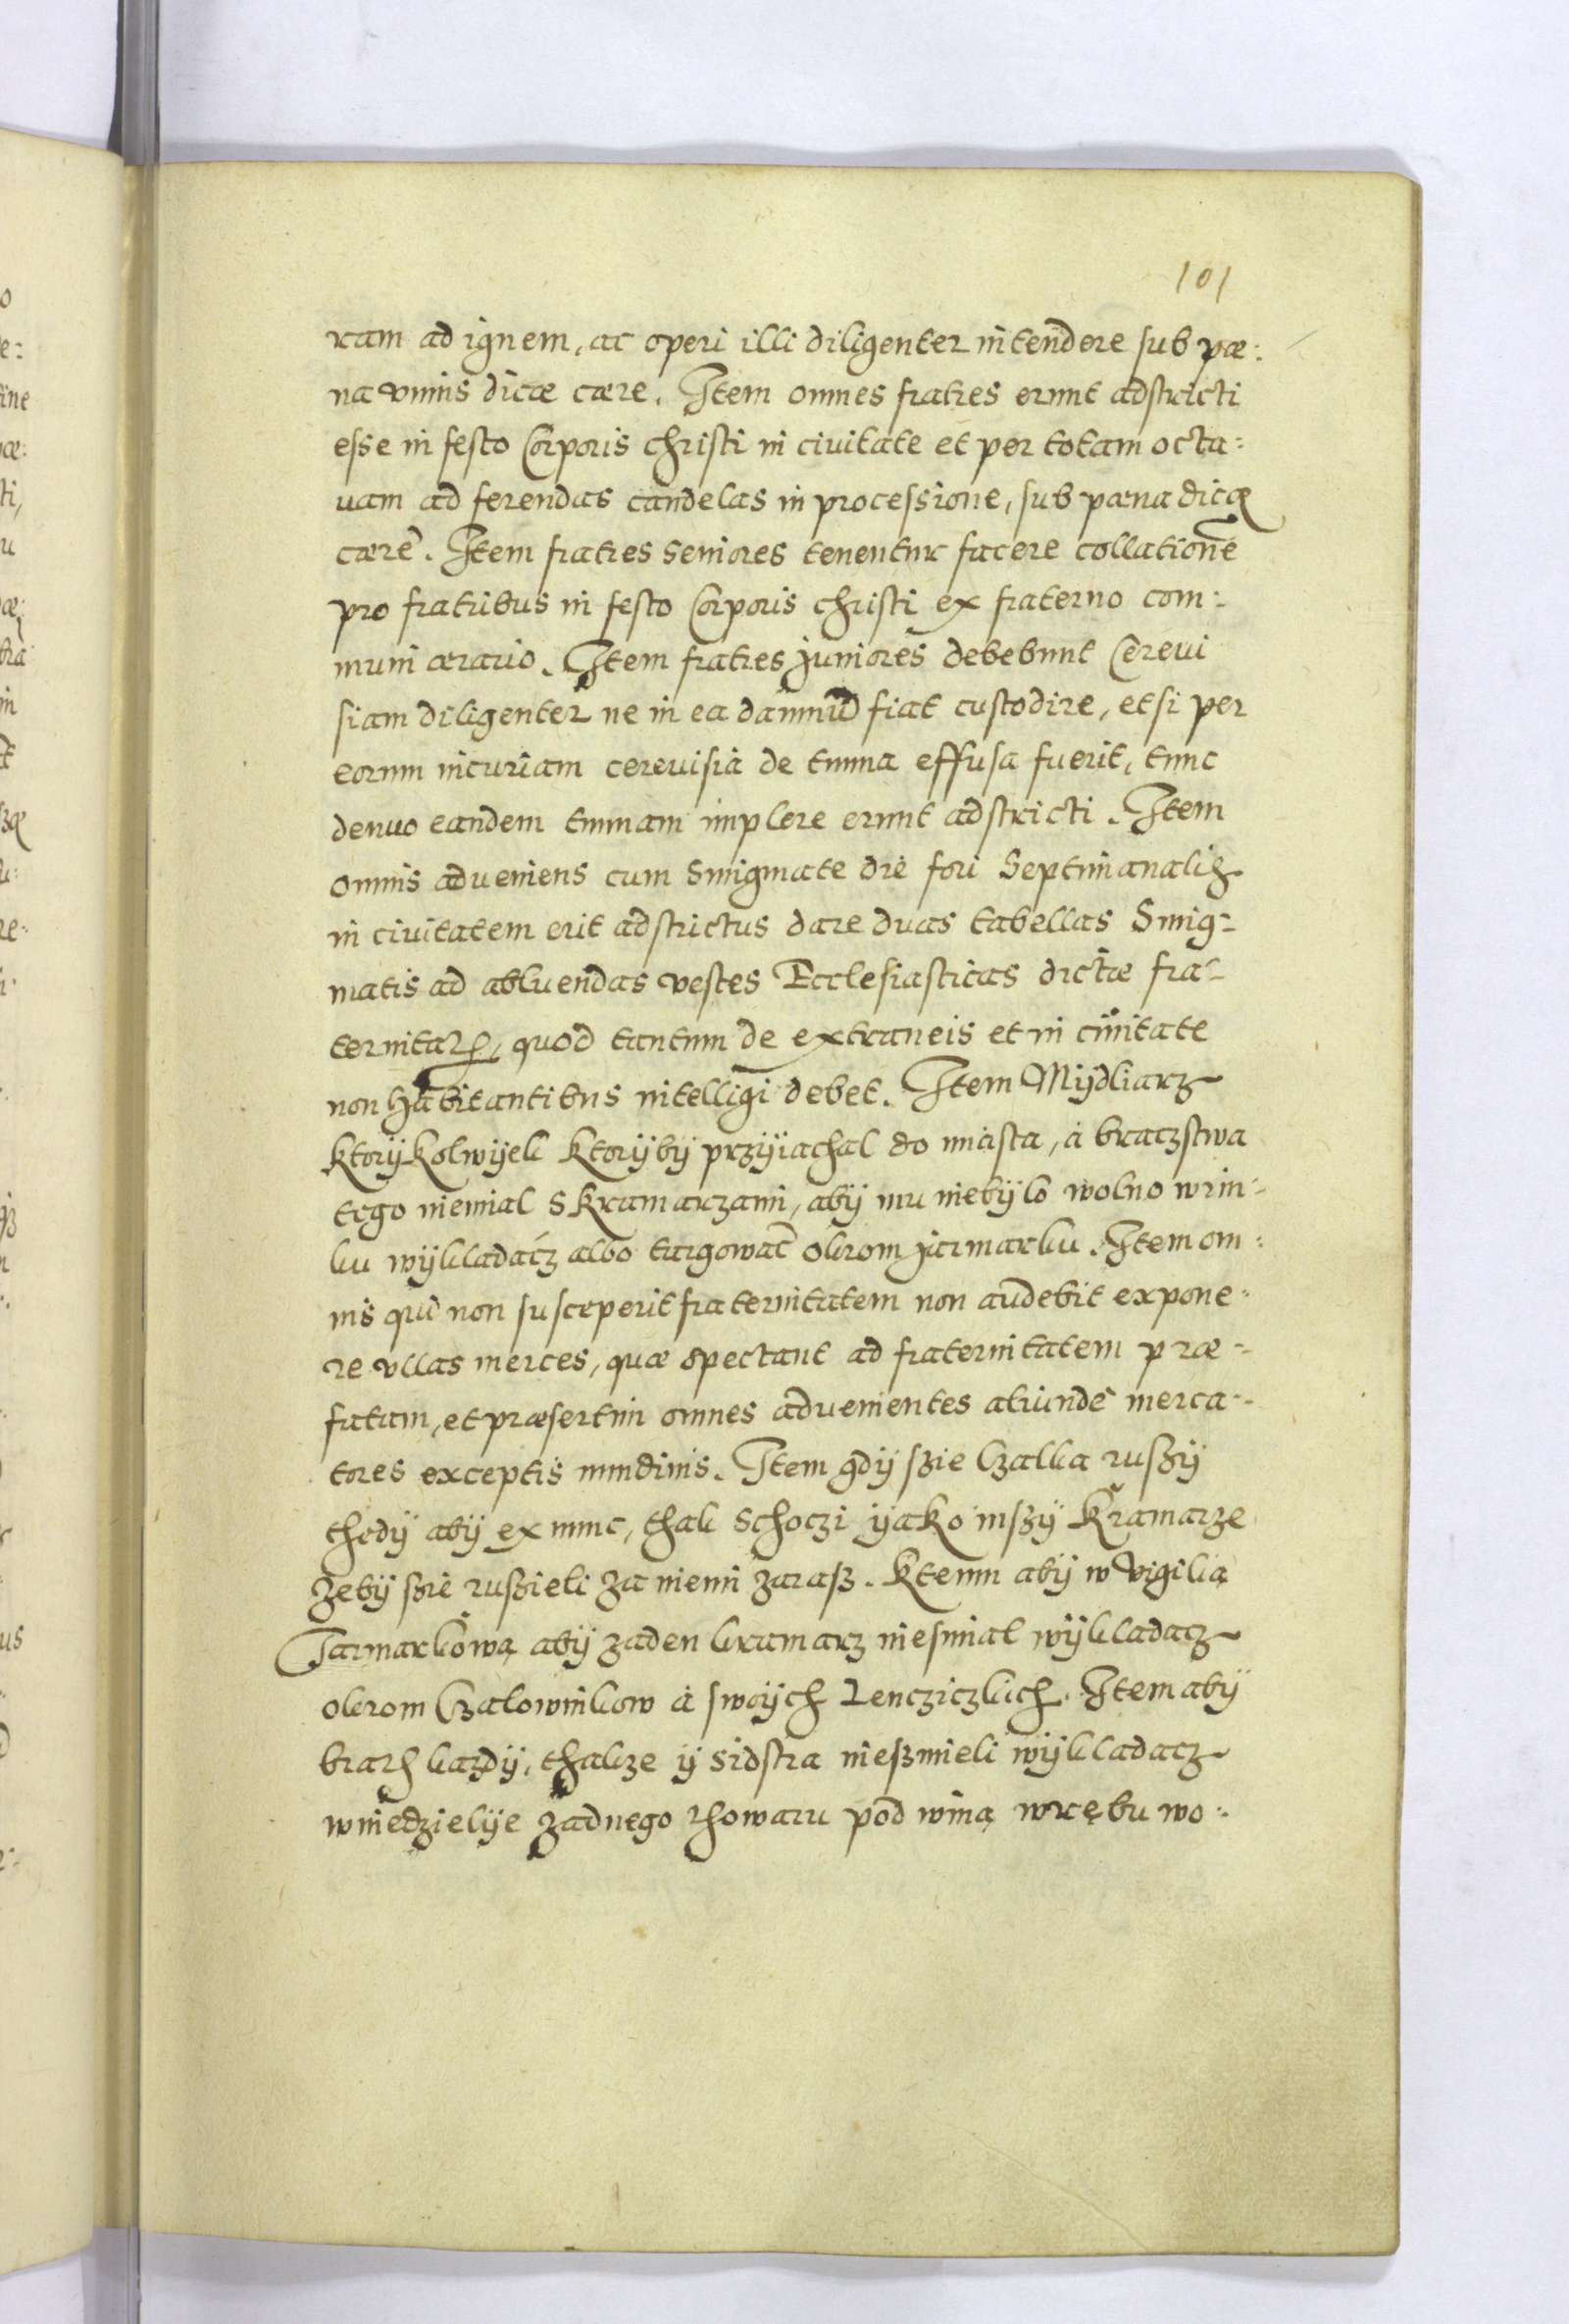 101
ram ad ignem, ac operi illi diligenter intendere sub pœ:
na vnius dicæ cæræ. Item omnes fratres erunt adstricti
esse in festo Corporis christi in ciuitate et per totam octa:
uam ad ferendas candelas in processione, sub pœna dicę
cæræ. Item fratres Seniores tenentur facere collationẽ
pro fratribus in festo Corporis christi ex fraterno com:
muni ærario. Item fratres juniores debebunt Cereui
siam diligenter ne in ea damnũ fiat custodire, et si per
eorum incuriam cereuisia de tunna effusa fuerit, tunc
denuo eandem tunnam implere erunt adstricti. Item
omnis adueniens cum Smigmate die fori Septimanalis
in ciuitatem erit adstrictus dare duas tabellas Smig:
matis ad abluendas vestes Ecclesiasticas dictæ fra:
ternitatis, quod tantum de extraneis et in ciuitate
non habitantibus intelligi debet. Item Mÿdliarz
ktorÿkolwÿek ktorÿbÿ przÿiachal do miasta, á braczstwa
tego niemial Skramarzami, abÿ mu niebÿlo wolno w rin:
ku wÿkladacz albo targowac okrom jarmarku. Item om:
nis qui non susceperit fraternitatem non audebit expone:
re vllas merces, quæ spectant ad fraternitatem præ:
fatam, et præsertim omnes aduenientes aliunde merca:
tores exceptis nundinis. Item gdÿ szie Czalka ruszÿ
thedÿ abÿ ex nunc, thak Schoczi ÿako inszÿ Kramarze
zebÿ szie ruszieli za niemi zarasz. Ktemu abÿ w vigilią
Jarmarkową abÿ zaden kramarz niesmial wÿkladacz
okrom Czalownikow á swoÿch Lencziczkich. Item abÿ
brath kazdÿ, thakze ÿ Siostra nieszmieli wÿkladacz
wniedzielÿe żadnego thowaru pod winą wrębu wo: